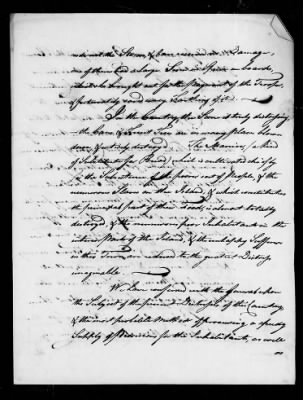 out in the Storm, & have received no Damage,
one of them had a large Sum in Specie on board,
which she brought out for the payment of the Troops,
fortunately could carry nothing of it.
In the Country, the Scene is truly distressing
the Cane & Fruit Trees are in many places blown
down, & entirely destroyed. The Maniac, a kind
of Substitute for Bread, which is cultivated chiefly
for the Subsistence of the poorer sort of People, & the
numerous Slaves on the Island, & which constitutes
the principal part of their Food, is almost totally
destroyed, & the numerous poor Inhabitants in the
interior parts of the Island, & the unhappy Sufferers
in this Town, are reduced to the greatest Distress
imaginable.
We have conferred with the General upon
the Subject of the present Distresses of the Country
& the most probable Method of procuring a speedy
Supply of Provisions for the Inhabitants, as well